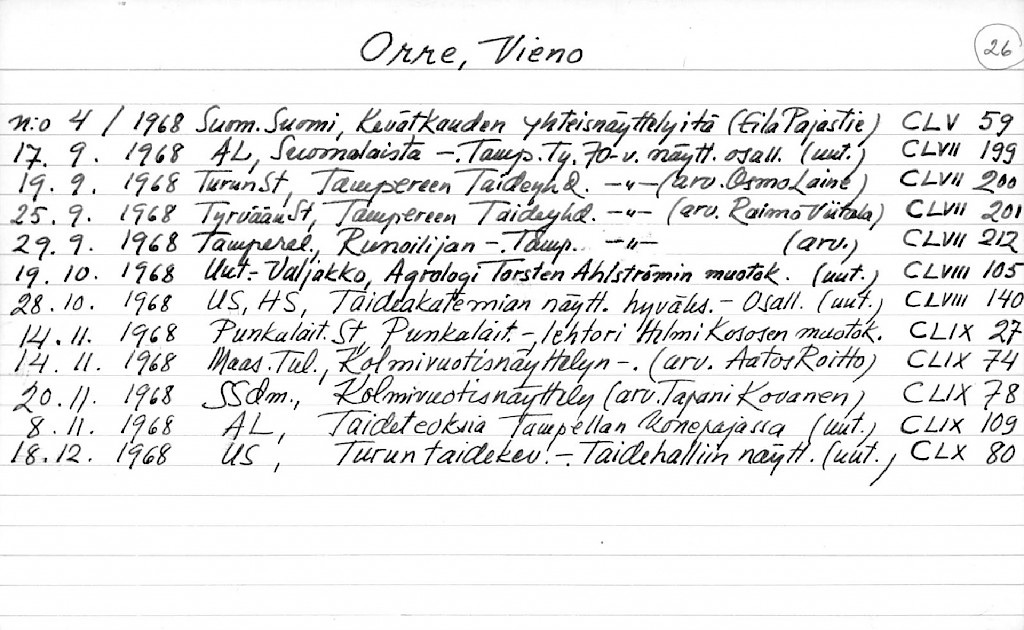 Orre, Vieno
26
n:o 4 / 1968 Suom. Suomi, Kevätkauden yhteisnäyttelyitä (Eila Pajastie) CLV 59
17. 9. 1968 AL, Suomalaista -. Tamp. Ty. 70-v. näytt. osall. (uut.) CLVII 199
19. 9. 1968 TurunSt, Tampereen Taideyhd. -"- (arv. Osmo Laine) CLVII 200
25. 9. 1968 TyrväänSt, Tampereen Taideyhd. -"- (arv. Raimo Viitala) CLVII 201
29. 9. 1968 Tamperel., Runoilijan -. Tamp. -"- (arv.) CLVII 212
19. 10. 1968 Uut-Valjakko, Agrologi Torsten Ahlströmin muotok. (uut.) CLVIII 105
28. 10. 1968 US, HS, Taideakatemian näytt. hyväks. - Osall. (uut.) CLVIII 140
14. 11. 1968 Punkalait. St, Punkalait. -, lehtori Helmi Kososen muotok. CLIX 27
14. 11. 1968 Maas. Tul., Kolmivuotisnäyttelyn -. (arv. Aatos Roitto) CLIX 74
20. 11. 1968 SSdm., Kolmivuotisnäyttely (arv. Tapani Kovanen) CLIX 78
8. 11. 1968 AL, Taideteoksia Tampellan konepajassa (uut.) CLIX 109
18. 12. 1968 US, Turun taidekev. -. Taidehalliin näytt. (uut.) CLX 80